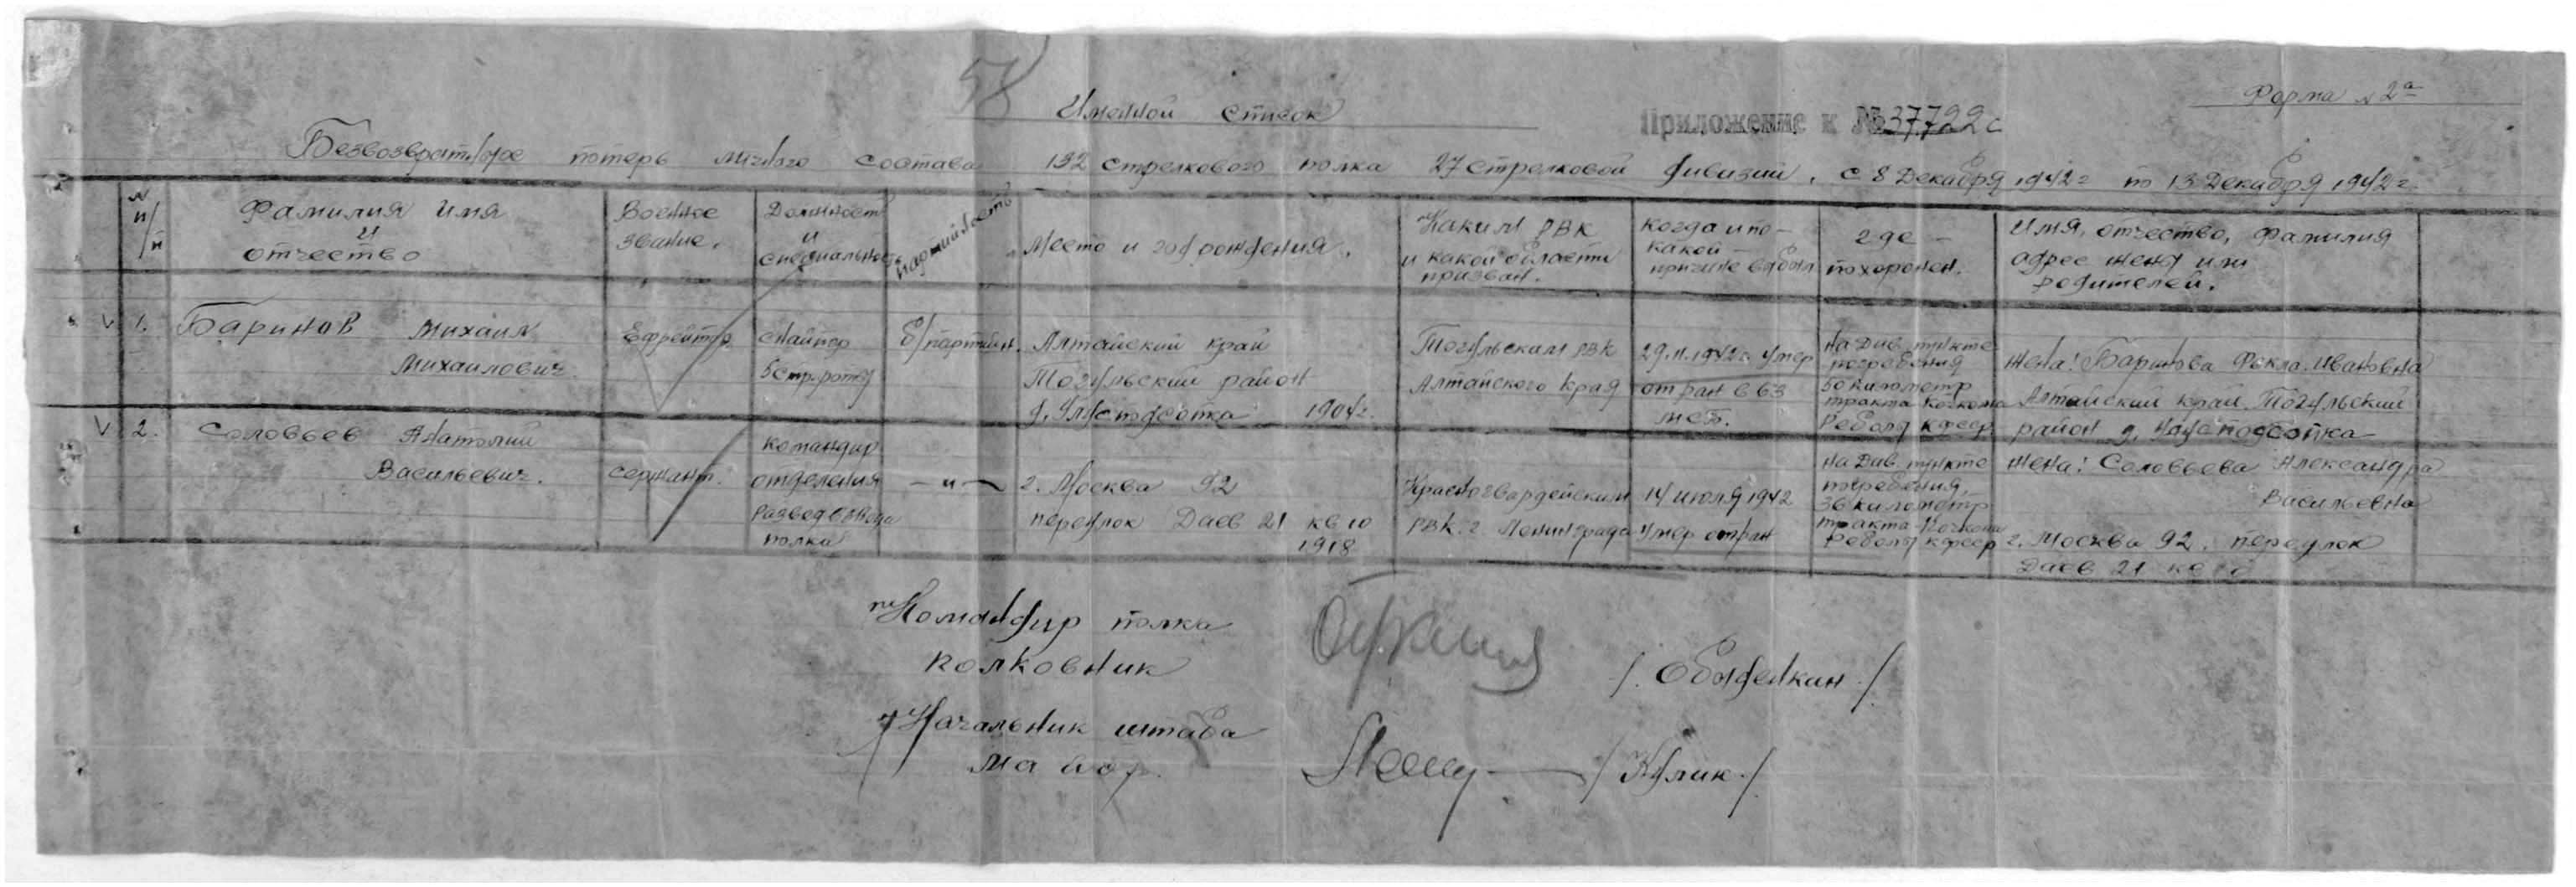 58
Именной список
Форма №2а
Приложение к №37722с
Безвозвратное потерь личного состава 132 стрелкового полка 27 стрелковой дивизии. с 8 декабря 1942г по 13 декабря 1942г.
№ п/п
Фамилия имя и отчество
Военное звание.
Должность и специальность
партийность
Место и год рождения.
Каким РВК и какой области призван.
Когда и по какой причине выбыл
где похоронен.
Имя, отчество, фамилия адрес жены или родителей.
V 1. Баринов Михаил
Михаилович
Ефрейтор
снайпер
5 стр. роты
б/партийн.
Алтайский край
Тогульский район
1904г.
Тогульским РВК
Алтайского края
29.11.1942г. умер
от ран в 63
мсб.
на див. пункте
погребения
50 километр
тракта Кочкома
Реболы кфсср
жена: Баринова Фекла Ивановна
Алтайский край Тогульский
район д.
V 2. Соловьев Анатолий
Васильевич.
сержант.
командир
отделения
развед взвода
полка
— " —
г. Москва 92
переулок Даев 21 кв 10
1918
Красногвардейским
РВК. г. Ленинграда
14 июля 1942
умер от ран
на див. пункте
погребения,
36 километр
тракта Кочкома
Реболы кфсср
жена: Соловьева Александра
Васильевна
г. Москва 92. переулок
Даев 21 кв
Командир полка
полковник
/. Обыделкин /
Начальник штаба
майор.
/ Кулик /